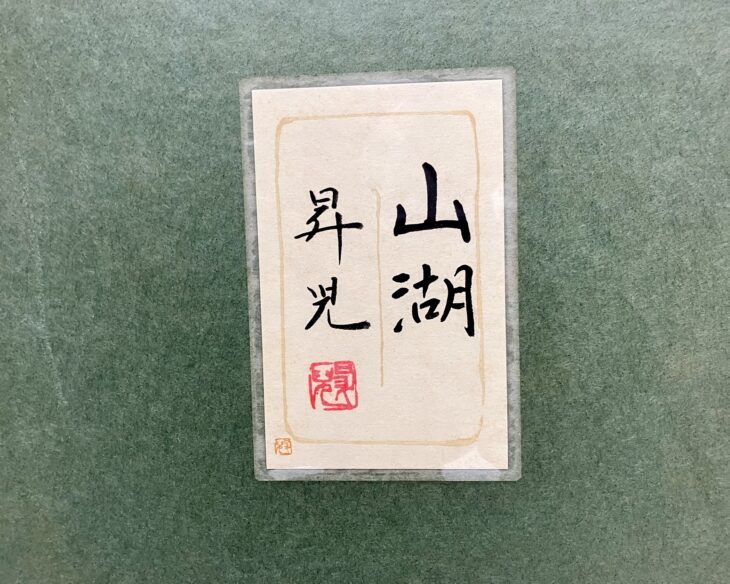 山湖
昇児